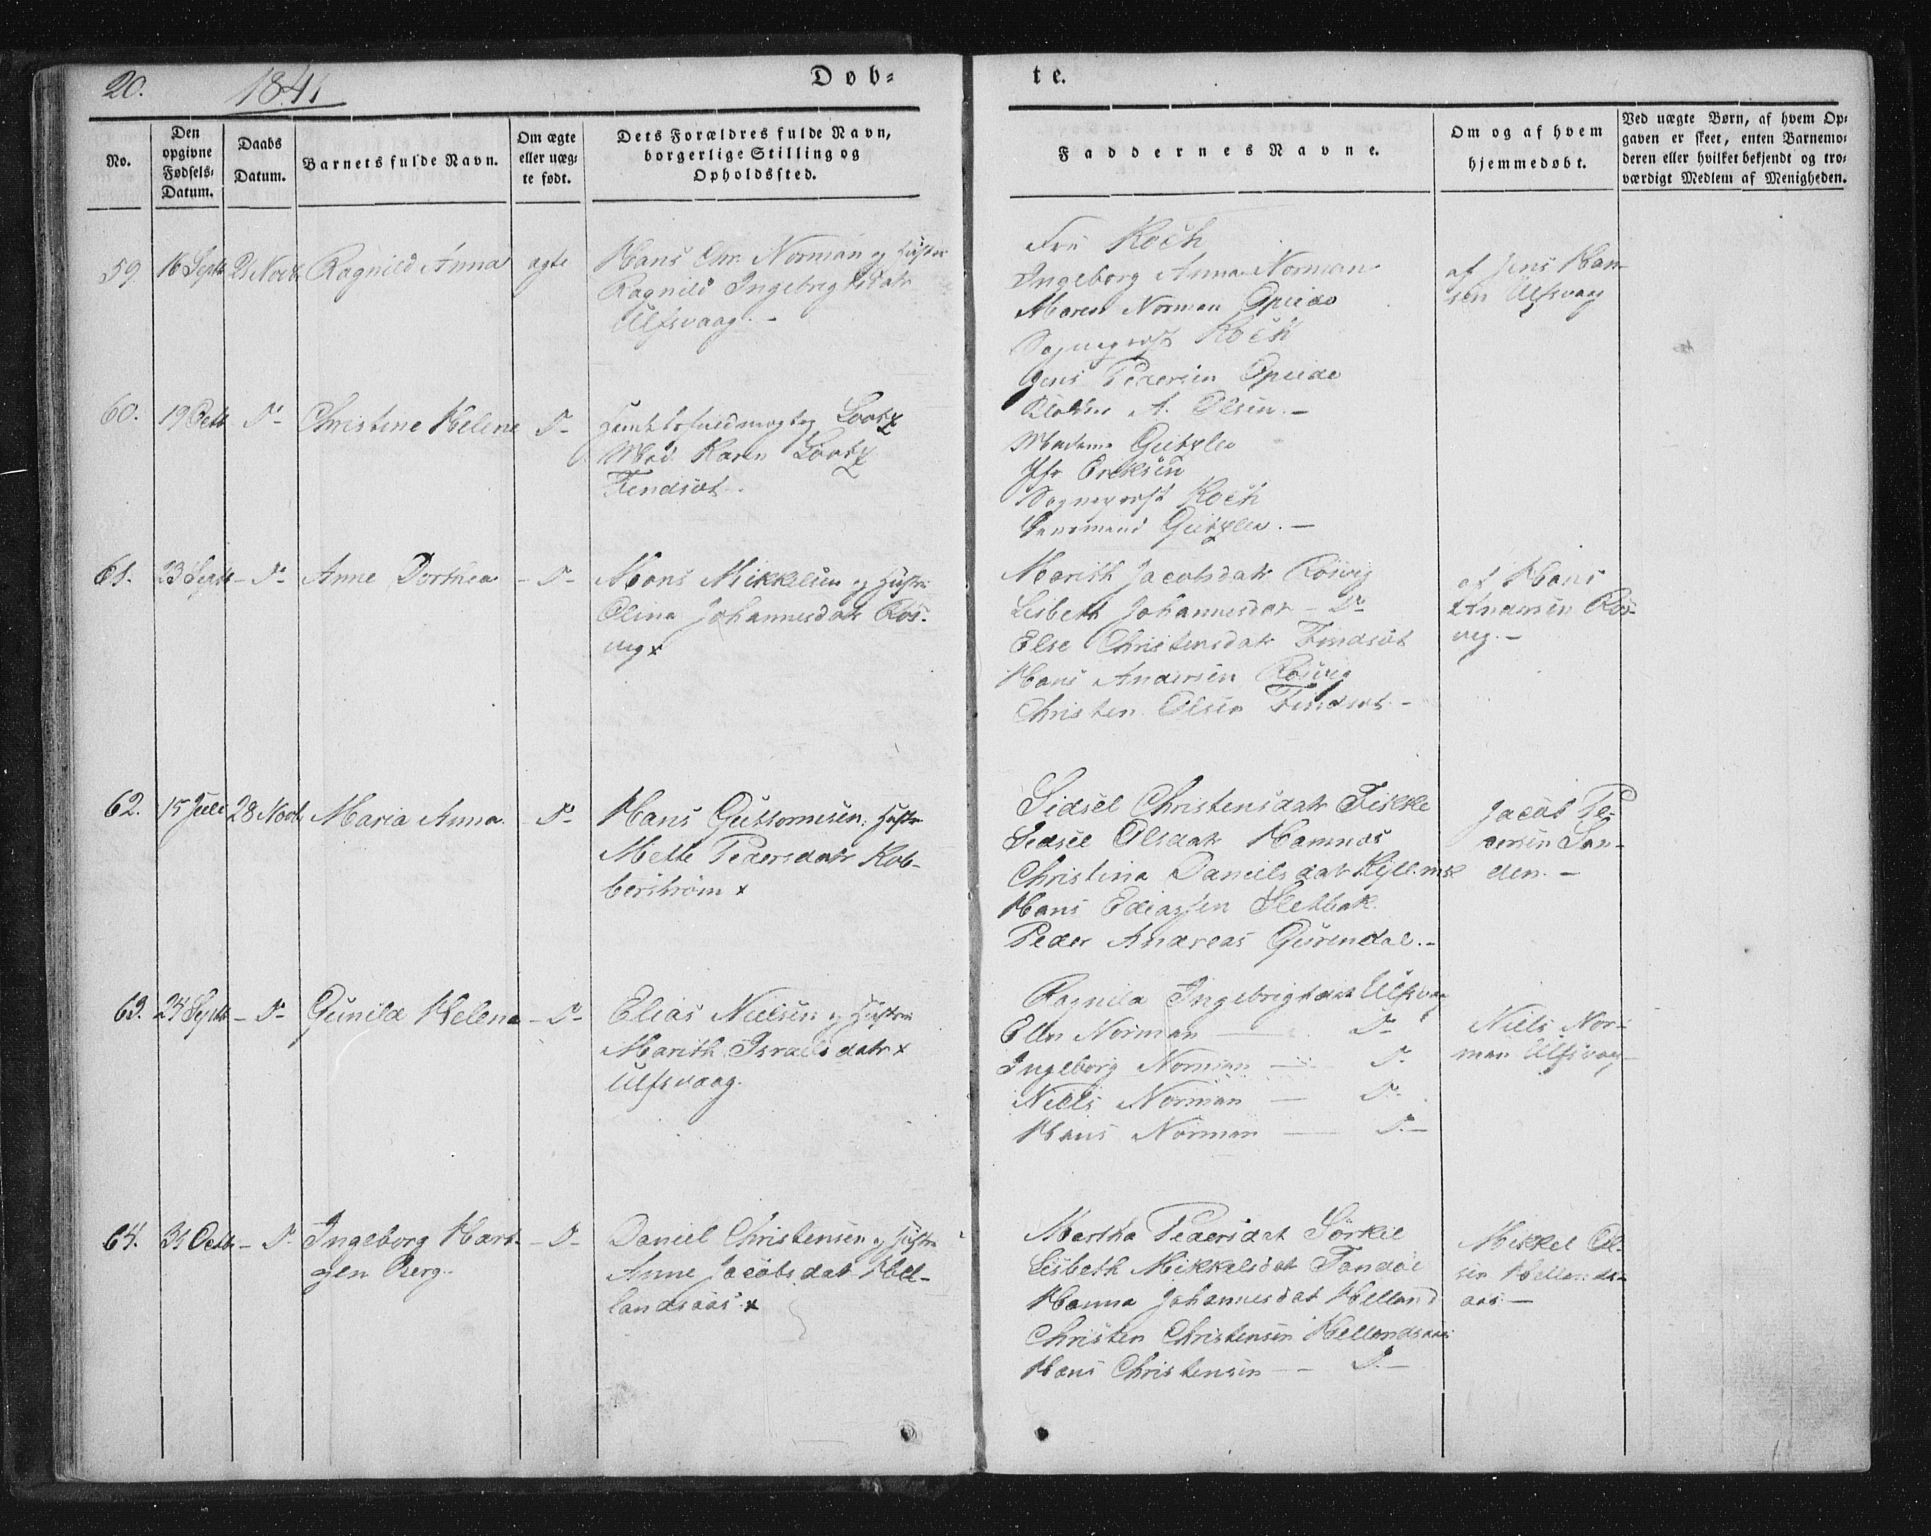 20. 1841 Døb-
te.
No.
Den opgivne Fødsels-Datum.
Daabs Datum.
Barnets fulde Navn.
Om ægte eller uæg-te født.
Dets Forældres fulde Navn, borgerlige Stilling og Opholdssted.
Faddernes Navne.
Om og af hvem hjemmedøbt.
Ved uægte Børn, af hvem Op-
gaven er skeet, enten Barnemo-
deren eller hvilket bekjendt og tro-
værdigt Medlem af Menigheden.
59. 16 Septb 21 Novb. Ragnild Anna ægte
Hans Chr. Norman og Hustru
Ragnild Ingebrigtsdatr
Ulfsvaag. -
Fru Koch
Ingeborg Anna Norman
Maren Norman Opeide
Sogneprest Koch
Jens Pedersen Opeide
A. Olsen. -
Madame
Jfr Eriksen
Sogneprest Koch
af Jens Han-
sen Ulfsvaag
60. 19 Octb D- Christine Helene D-
Lootz
Mad. Karen Lootz
Findsæt -
61. 23 Septb - D- Anne Dorthea - D-
Mons Mikkelsen og Hustru
Olina Johannesdatr Røs-
vig x
Marith Jacobsdatr Røsvig
Lisbeth Johannesdat - D-
Else Christensdatr Findsæt
Hans Andersen Røsvig
Christen Olsen Findsæt -
af Hans
Andersen Røs-
vig. -
62. 15 Juli 28 Novb. Maria Anna. - D-
Hans Guttormsen. Hustr
Mette Pedersdatr Kob-
berstrøm x
Sidsel Christensdatr Fikke
Sidsel Olsdatr Hamnes
Christina Danielsdat
Hans Sletbak.
Peder Andreas -
Jacob Pe-
dersen San-
den. -
63. 24 Septb - D- Gunild Helena - D-
Elias Nielsen og Hustru
Marith Israelsdatr x
Ulfsvaag.
Ragnild Ingebrigtdat Ulfsvag
Ellen Norman - D-
Ingeborg Norman - D-
Niels Norman - D-
Hans Norman - D-
Niels Nor-
man Ulfsvaag
64. 31 Octb - D- Ingeborg Hart- - D-
gen Berg.
Daniel Christensen og Hustru
Anne Jacobsdat Hel-
landsaas x
Martha Pedersdat Sørkil
Lisbeth Mikkelsdat
Hanna Johannesdat Helland
Christen Christensen Hellandsaas
Hans Christensen - D. -
Mikkel Ol-
sen Hellands-
aas. -